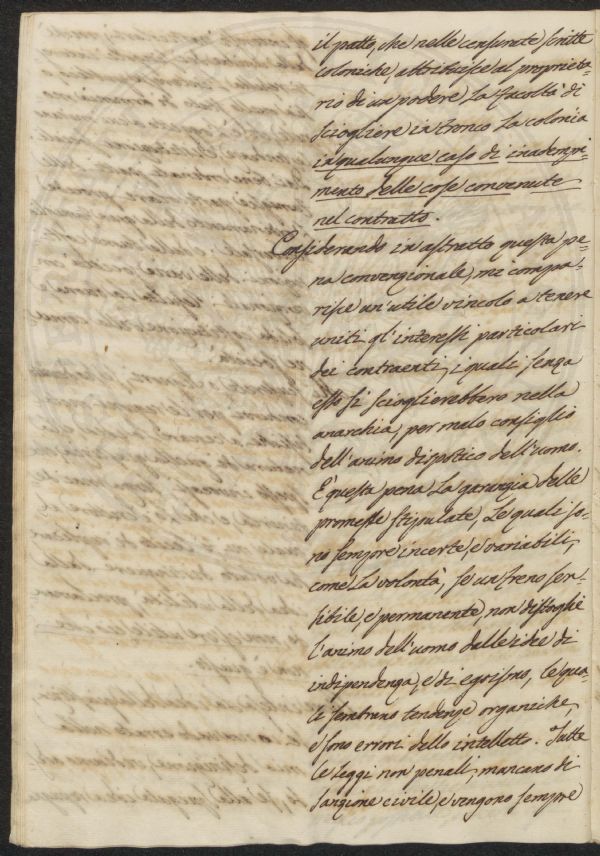 il patto, che nelle censurate scritte
coloniche attribuisce al proprieta=
rio di un podere la facoltà di
sciogliere in tronco la colonia
in qualunque caso di inadempi=
mento delle cose convenute
nel contratto.
Considerando in astratto questa pe=
na convenzionale, mi compa=
risce un'utile vincolo a tenere
uniti gl'interessi particolari
dei contraenti, i quali senza
esso si scioglierebbero nella
anarchia, per malo consiglio
dell'animo dispotico dell'uomo.
È questa pena la garanzia delle
promesse stipulate, le quali so=
no sempre incerte, e variabili,
come la volontà, se un freno sen=
sibile, e permanente, non distoglie
l'animo dell'uomo dalle idee di
indipendenza, e di egoismo, le qua=
li sembrano tendenze organiche,
e sono errori dello intelletto. Tutte
le leggi non penali, mancano di
sanzione civile, e vengono sempre